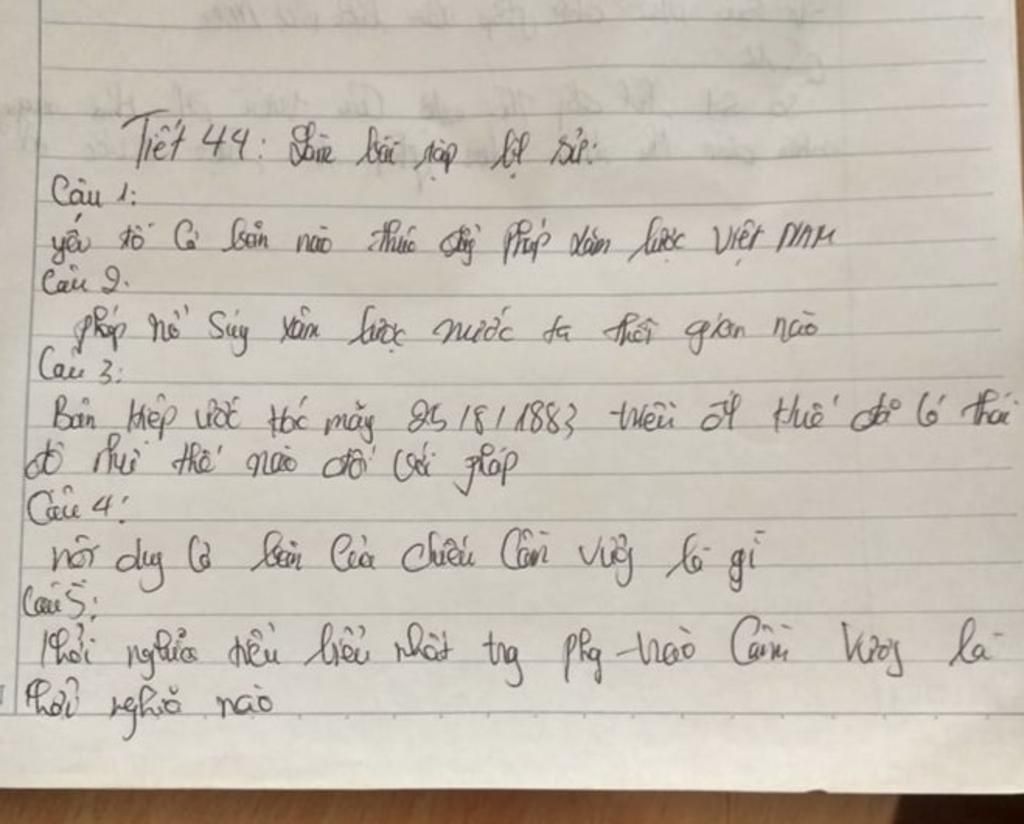 Tiết 44: Làm bài tập lịch sử:
Câu 1:
yếu tố cơ bản nào thúc đẩy Pháp xâm lược Việt NAM
Câu 2.
pháp nổ súng xâm lược nước ta thời gian nào
Câu 3:
Bản hiệp ước Hác măng 25/8/1883 triều đ Huế đã có thái
độ như thế nào đối với pháp
Câu 4:
nội dung cơ bản của chiếu Cần vương là gì
Câu 5:
khởi nghĩa tiêu biểu nhất trg phg trào Cần Vương là
khởi nghĩa nào